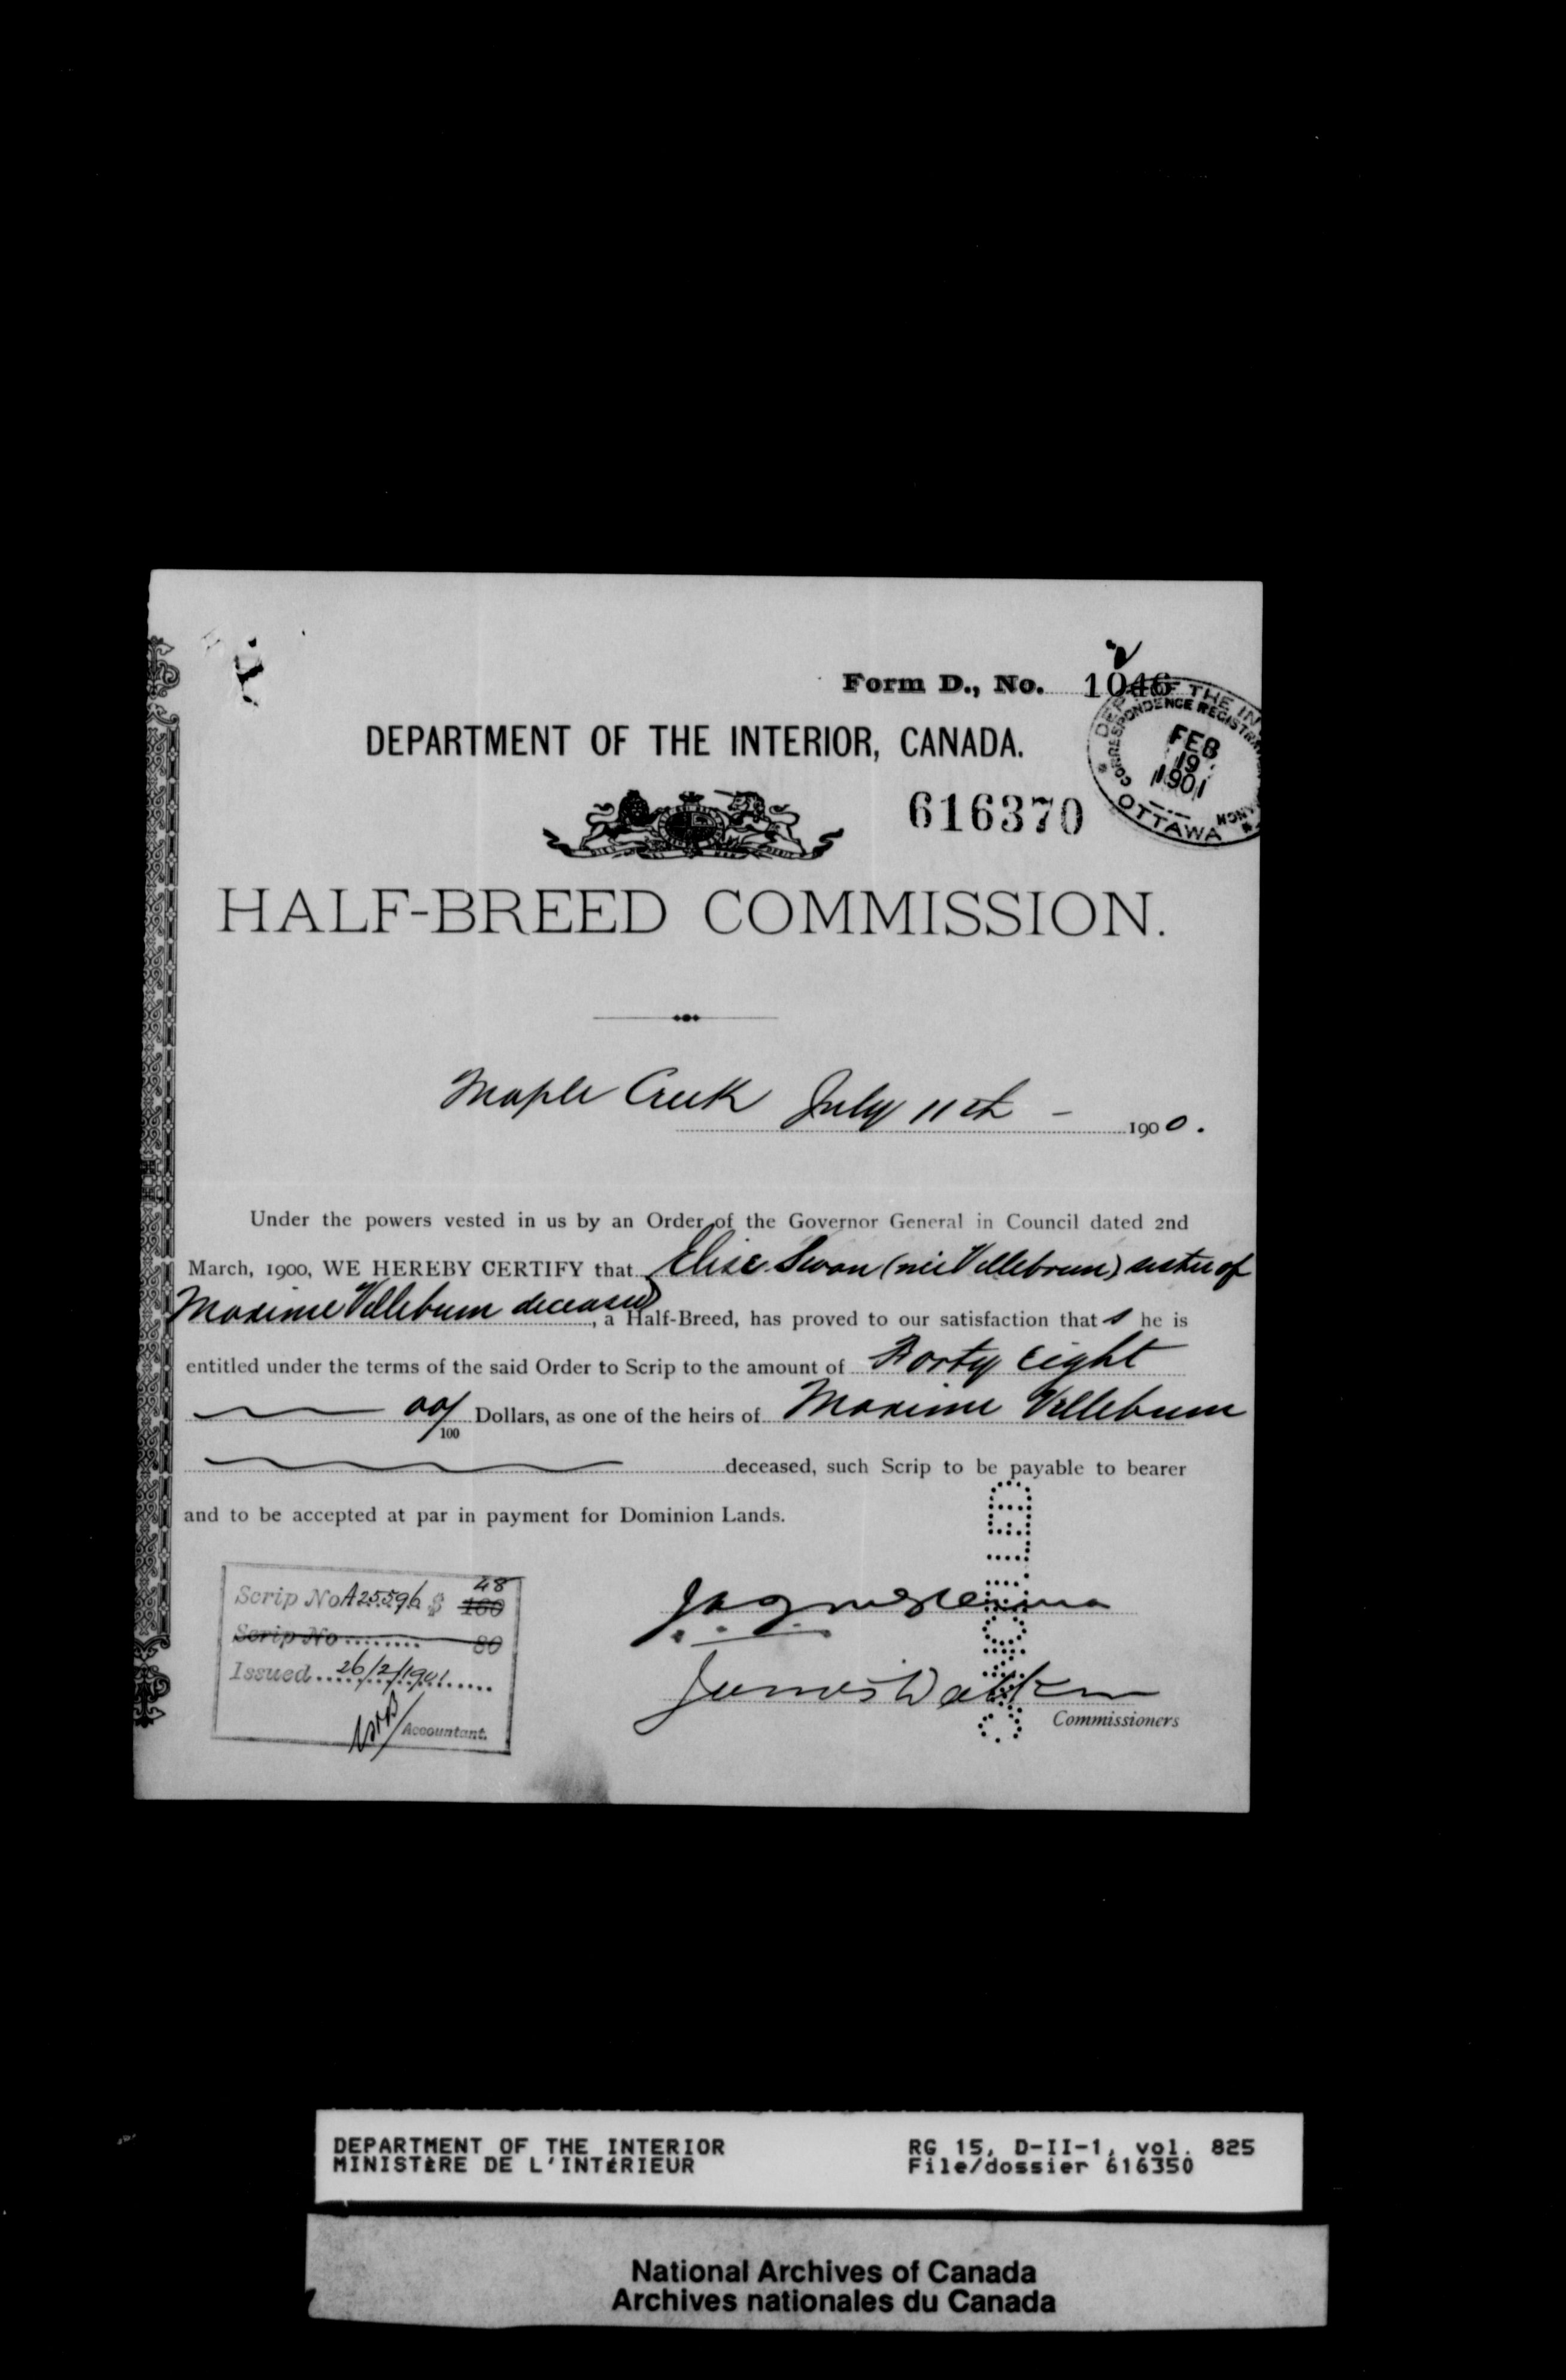 Form D., No. 1046
DEPARTMENT OF THE INTERIOR, CANADA.
DEPT OF THE IN
CORRESPONDENCE REGISTRATION
FEB
19
1901
OTTAWA
616370
HALF-BREED COMMISSION.
Maple Creek July 11th – 1900.
Under the powers vested in us by an Order of the Governor General in Council dated 2nd
March, 1900, WE HEREBY CERTIFY that Elise Swan (née Villebrun) sister of
Maxime Villebrun deceased, a Half-Breed, has proved to our satisfaction that s he is
entitled under the terms of the said Order to Scrip to the amount of Forty eight
00/100 Dollars, as one of the heirs of Maxime Villebrun
deceased, such Scrip to be payable to bearer
and to be accepted at par in payment for Dominion Lands.
Scrip No A25596 $ 160 48
Scrip No ........ 80
Issued 26/2/1901
Accountant.
James Walker
Commissioners
CANCELLED
DEPARTMENT OF THE INTERIOR
MINISTÈRE DE L'INTÉRIEUR
RG 15, D-II-1, vol. 825
File/dossier 616350
National Archives of Canada
Archives nationales du Canada